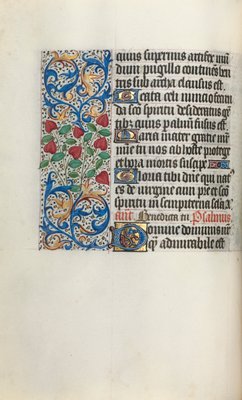 quius supernus artifex mũ
dum pugillo continẽs ven
tris sub archa clausus est.
Beata celi nuncio fecun
da sc̃o spiritu desideratus gẽ
tibus cuius per aluum fusus est.
Maria mater gratie m̃
mie tu nos ab hoste protege
et hora mortis suscipe
Gloria tibi dñe qui nat͛
es de virgine cum pr̃e et sc̃o
spiritu in sempiterna secla. A
añt. Benedicta tu. Psalmus.
Domine dominus nr̃
q̃ admirabile est